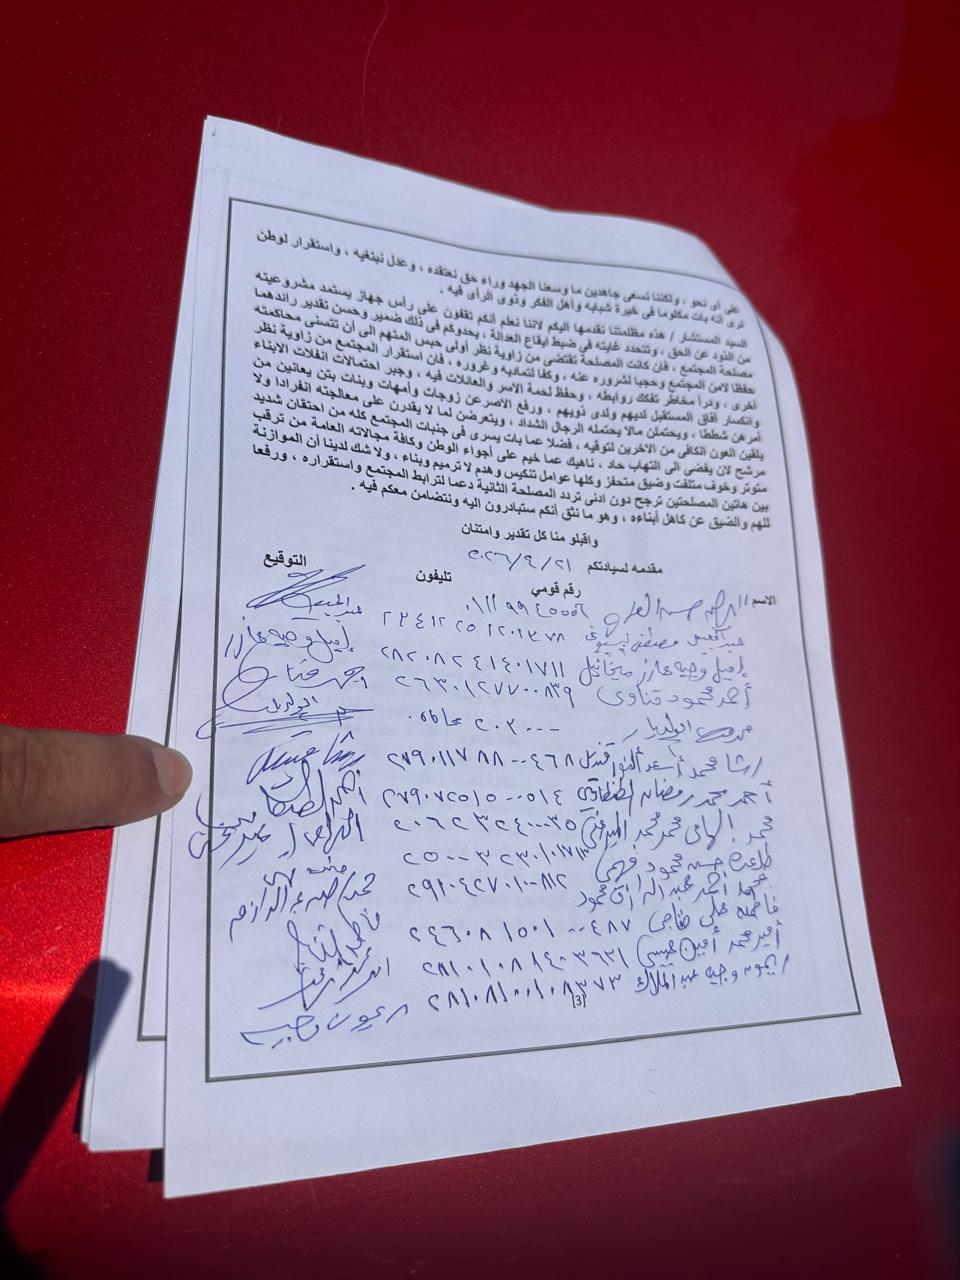 على أى نحو ، ولكننا نسعى جاهدين ما وسعنا الجهد وراء حق نعتقده ، وعدل نبتغيه ، واستقرار لوطن
نرى أنه بات مكلوما فى خيرة شبابه وأهل الفكر وذوى الرأى فيه .
السيد المستشار / هذه مظلمتنا نقدمها اليكم لاننا نعلم أنكم تقفون على رأس جهاز يستمد مشروعيته
من الذود عن الحق ، وتتحدد غايته فى ضبط ايقاع العدالة ، يحدوكم فى ذلك ضمير وحسن تقدير رائدهما
مصلحة المجتمع ، فان كانت المصلحة تقتضى من زاوية نظر أولى حبس المتهم الى أن تتسنى محاكمته
حفظا لامن المجتمع وحجبا لشروره عنه ، وكفا لتماديه وغروره ، فان استقرار المجتمع من زاوية نظر
أخرى ، ودرأ مخاطر تفكك روابطه ، وحفظ لحمة الاسر والعائلات فيه ، وجبر احتمالات انفلات الابناء
وانكسار أفاق المستقبل لديهم ولدى ذويهم ، ورفع الاصر عن زوجات وأمهات وبنات بتن يعانين من
أمرهن شططا ، ويحتملن مالا يحتمله الرجال الشداد ، ويتعرضن لما لا يقدرن على معالجته انفرادا ولا
يلقين العون الكافى من الاخرين لتوقيه ، فضلا عما بات يسرى فى جنبات المجتمع كله من احتقان شديد
مرشح لان يفضى الى التهاب حاد ، ناهيك عما خيم على أجواء الوطن وكافة مجالاته العامة من ترقب
متوتر وخوف متلفت وضيق متحفز وكلها عوامل تنكيس وهدم لا ترميم وبناء ، ولا شك لدينا أن الموازنة
بين هاتين المصلحتين ترجح دون ادنى تردد المصلحة الثانية دعما لترابط المجتمع واستقراره ، ورفعا
للهم والضيق عن كاهل أبناءه ، وهو ما نثق أنكم ستبادرون اليه ونتضامن معكم فيه .
واقبلو منا كل تقدير وامتنان
مقدمه لسيادتكم ٢٠٢٦/٤/٢١
الاسم / رقم قومي تليفون التوقيع
مصطفى
إميل وجيه عازر ميخائيل ٢٨٢٠٨٢٤١٤٠١٧١١ إميل وجيه عازر
أحمد محمود قناوى ٢٦٣٠١٢٧٧٠٠٨٣٩
رشا محمد أسعد أنور قنديل ٢٧٩٠١١٧٨٨٠٠٤٦٨ رشا قنديل
أحمد محمد رمضان الطنطاوي ٢٧٩٠٧٢٥١٥٠٠٥١٤
محمد إلهامى محمد محمد
طلعت حسن محمود فهمي
محمد أحمد عبد الرازق محمود ٢٩١٠٤٢٧٠١٠٠٨١٢ محمد أحمد عبد الرازق
فاطمة على خفاجى ٢٤٦٠٨١٥٠١٠٠٤٨٧
أمير محمد أمين عيسى ٢٨١٠١٠٨١٤٠٣٦٣١
ريمون وجيه عبد الملاك ريمون وجيه
[3]